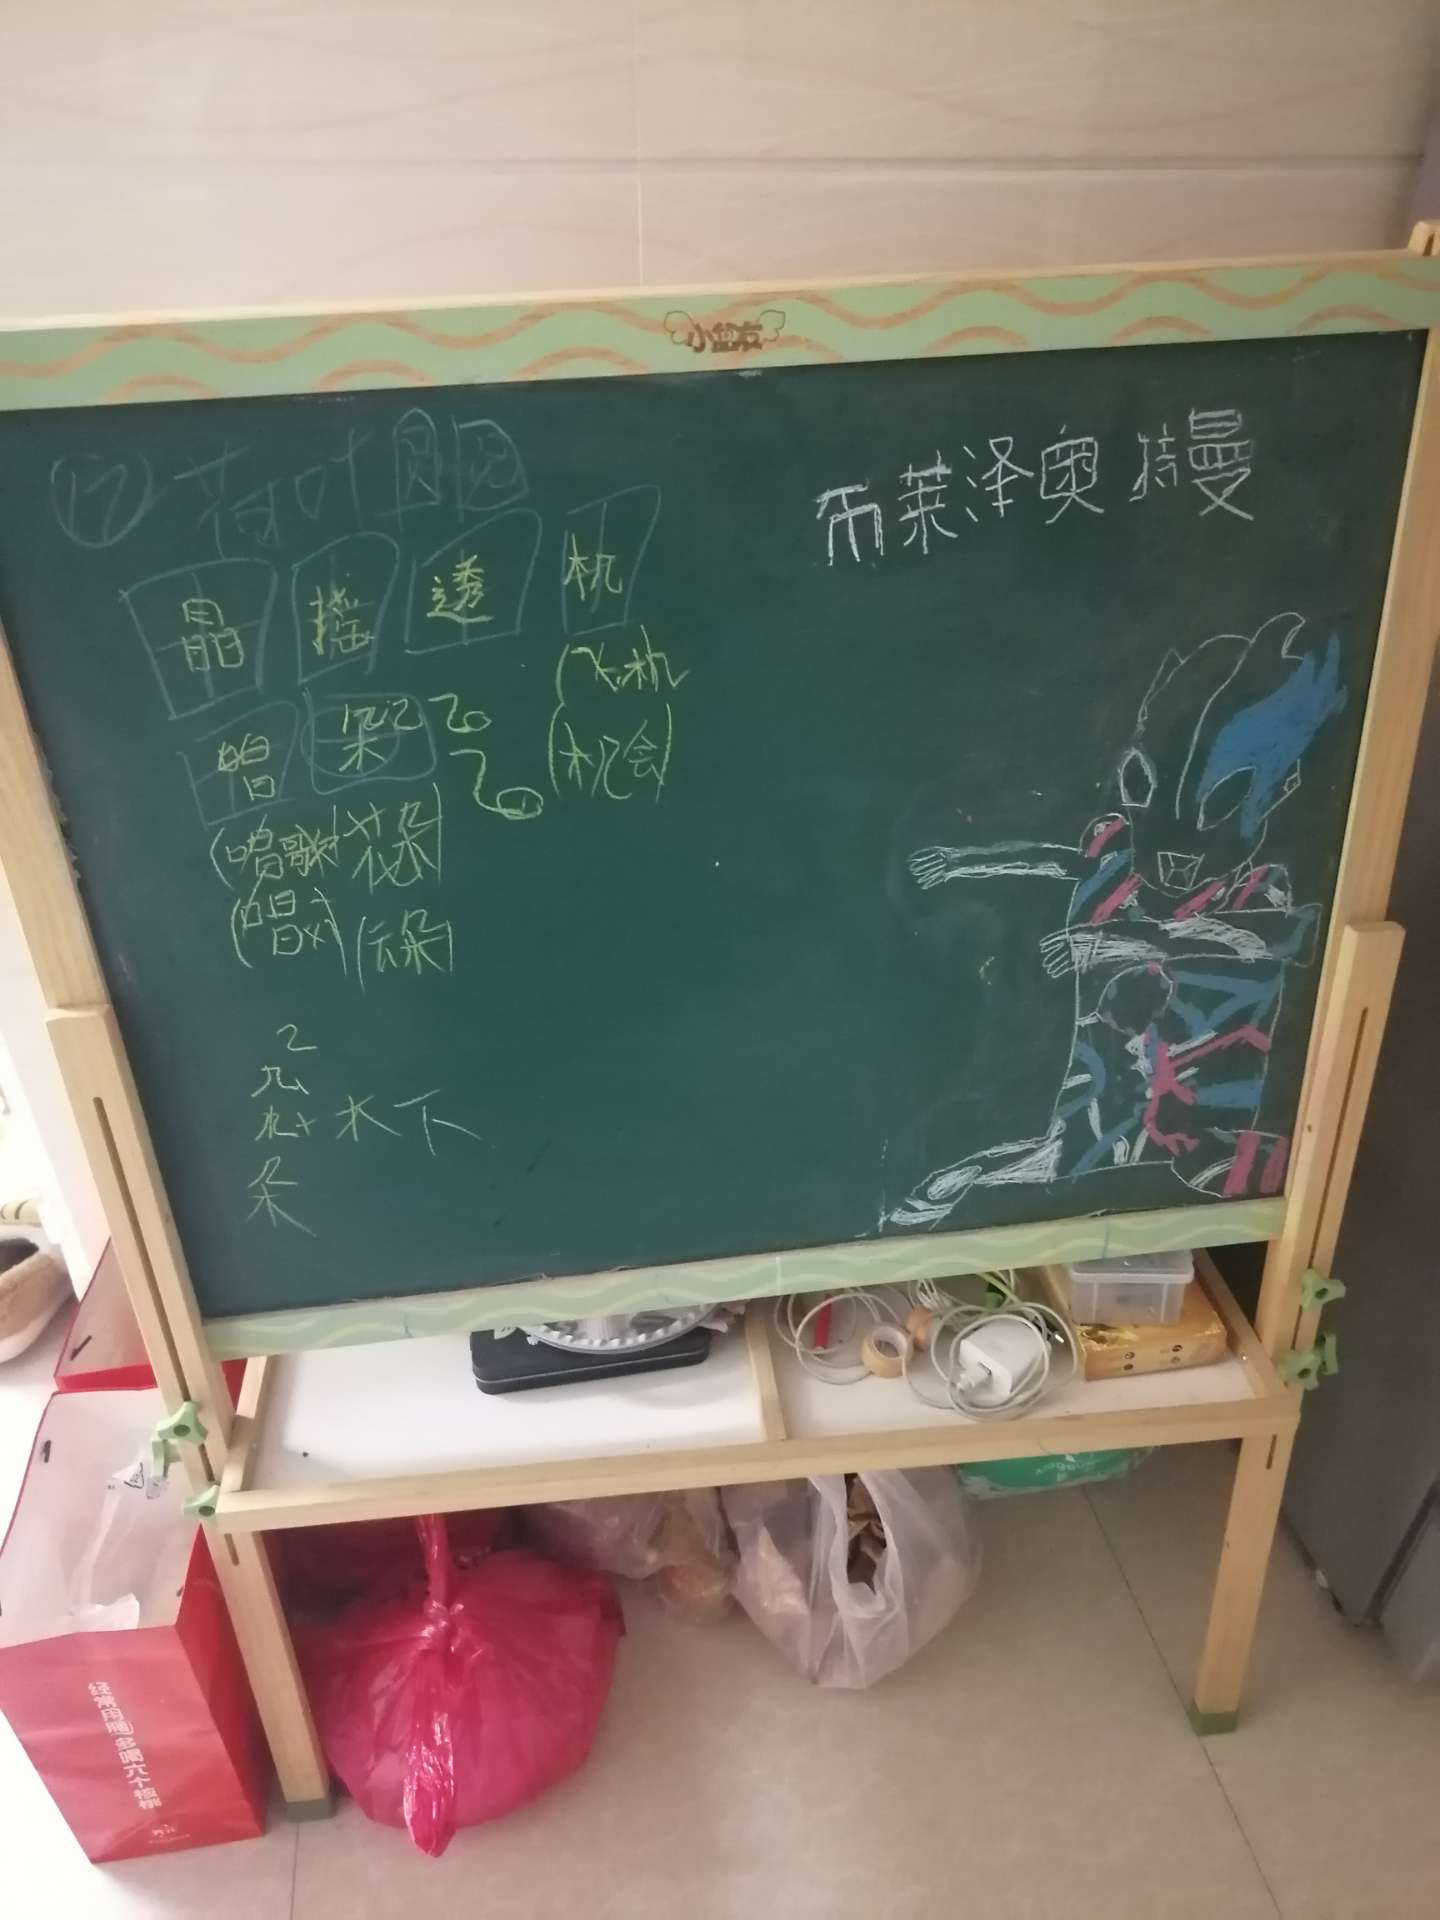 小盆友
⑫ 荷叶圆圆
布莱泽奥特曼
晶 摇 透 机
(飞机
唱 朵
(机会)
(唱歌) (花朵)
(唱 (云朵)
乙
几
木 下
朵
经常用脑 多喝六个核桃